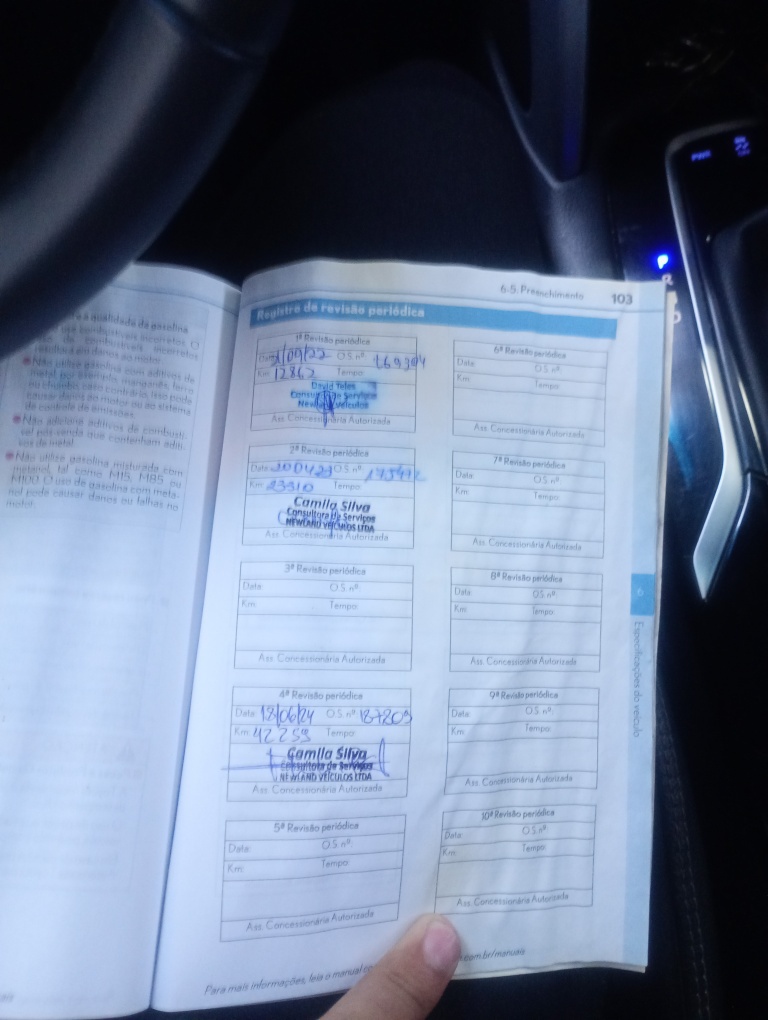 6-5. Preenchimento 103
a qualidade da gasolina
Não utilize gasolina com aditivos de
metal, por exemplo, manganês, ferro
ou chumbo, caso contrário, isso pode
causar danos ao motor ou ao sistema
de controle de emissões.
Não adicione aditivos de combustí-
vel pós-venda que contenham aditi-
vos de metal.
Não utilize gasolina misturada com
metanol, tal como M15, M85 ou
M100. O uso de gasolina com meta-
nol pode causar danos ou falhas no
motor.
Registro de revisão periódica
1ª Revisão periódica
Data: /09/22 O.S. nº: 169304
Km: 12862 Tempo:
David Teles
Consultor de Serviços
Newland Veículos
Ass. Concessionária Autorizada
2ª Revisão periódica
Data: 200423 O.S. nº:
Km: 23510 Tempo:
Camila Silva
Consultora de Serviços
NEWLAND VEÍCULOS LTDA
Ass. Concessionária Autorizada
3ª Revisão periódica
Data: O.S. nº:
Km: Tempo:
Ass. Concessionária Autorizada
4ª Revisão periódica
Data: 18/06/24 O.S. nº: 187209
Km: 42259 Tempo:
Camila Silva
Consultora de Serviços
NEWLAND VEÍCULOS LTDA
Ass. Concessionária Autorizada
5ª Revisão periódica
Data: O.S. nº:
Km: Tempo:
Ass. Concessionária Autorizada
6ª Revisão periódica
Data: O.S. nº:
Km: Tempo:
Ass. Concessionária Autorizada
7ª Revisão periódica
Data: O.S. nº:
Km: Tempo:
Ass. Concessionária Autorizada
8ª Revisão periódica
Data: O.S. nº:
Km: Tempo:
Ass. Concessionária Autorizada
9ª Revisão periódica
Data: O.S. nº:
Km: Tempo:
Ass. Concessionária Autorizada
10ª Revisão periódica
Data: O.S. nº:
Km: Tempo:
Ass. Concessionária Autorizada
6
Especificações do veículo
Para mais informações, leia o manual .com.br/manuais
PWR
P
R